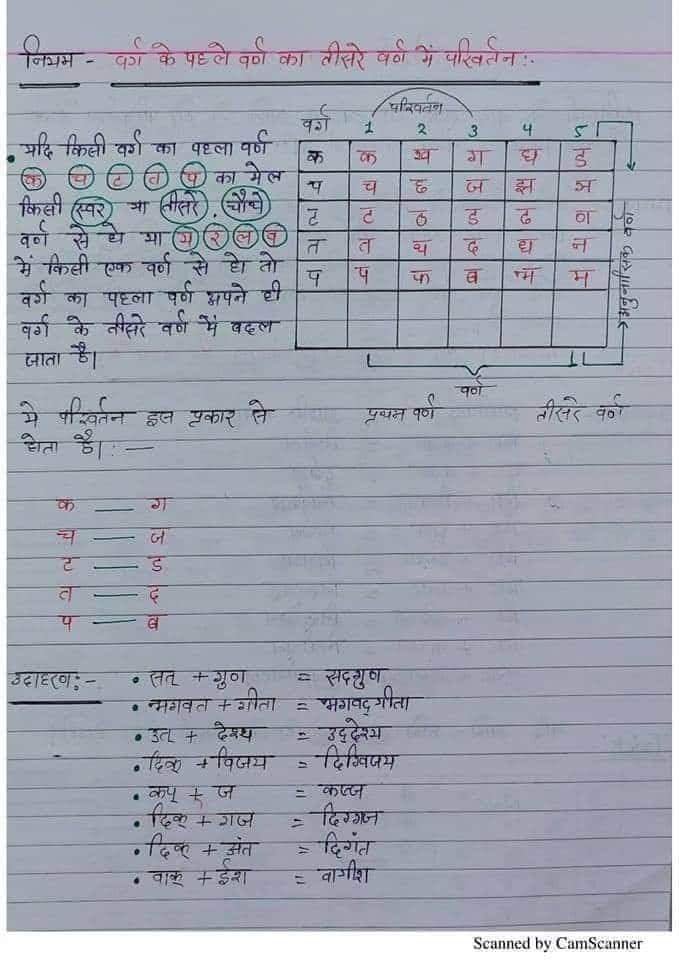 नियम - वर्ग के पहले वर्ण का तीसरे वर्ण में परिवर्तन :-
यदि किसी वर्ग का पहला वर्ण
क च ट त प का मेल
किसी स्वर या तीसरे, चौथे
वर्ण से हो या य र ल व
में किसी एक वर्ण से हो तो
वर्ग का पहला वर्ण अपने ही
वर्ग के तीसरे वर्ण में बदल
जाता है।
परिवर्तन
वर्ग 1 2 3 4 5
क क ख ग घ ङ
च च छ ज झ ञ
ट ट ठ ड ढ ण
त त थ द ध न
प प फ ब भ म
अनुनासिक वर्ण
वर्ण
ये परिवर्तन इस प्रकार से प्रथम वर्ण तीसरे वर्ण
होता है। : —
क — ग
च — ज
ट — ड
त — द
प — ब
उदाहरण:- • सत् + गुण = सदगुण
• भगवत + गीता = भगवद्गीता
• उत् + देश्य = उद्देश्य
• दिक् + विजय = दिग्विजय
• कप् + ज = कज्ज
• दिक् + गज = दिग्गज
• दिक् + अंत = दिगंत
• वाक् + ईश = वागीश
Scanned by CamScanner